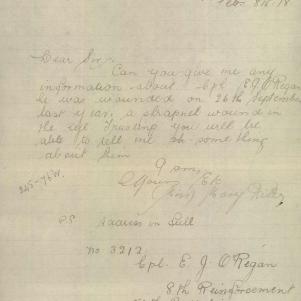 Feb 8th 18
Dear Sir,
Can you give me any
information about Cpl E J O'Regan
he was wounded on 26th September
last year, a shrapnel wound in
the Trusting you will be
able to tell me something
about them
I am
Yours Etc
(Miss) Mary
P.S. Address in full
No 3212
Cpl. E. J. O'Regan
8th Reinforcement